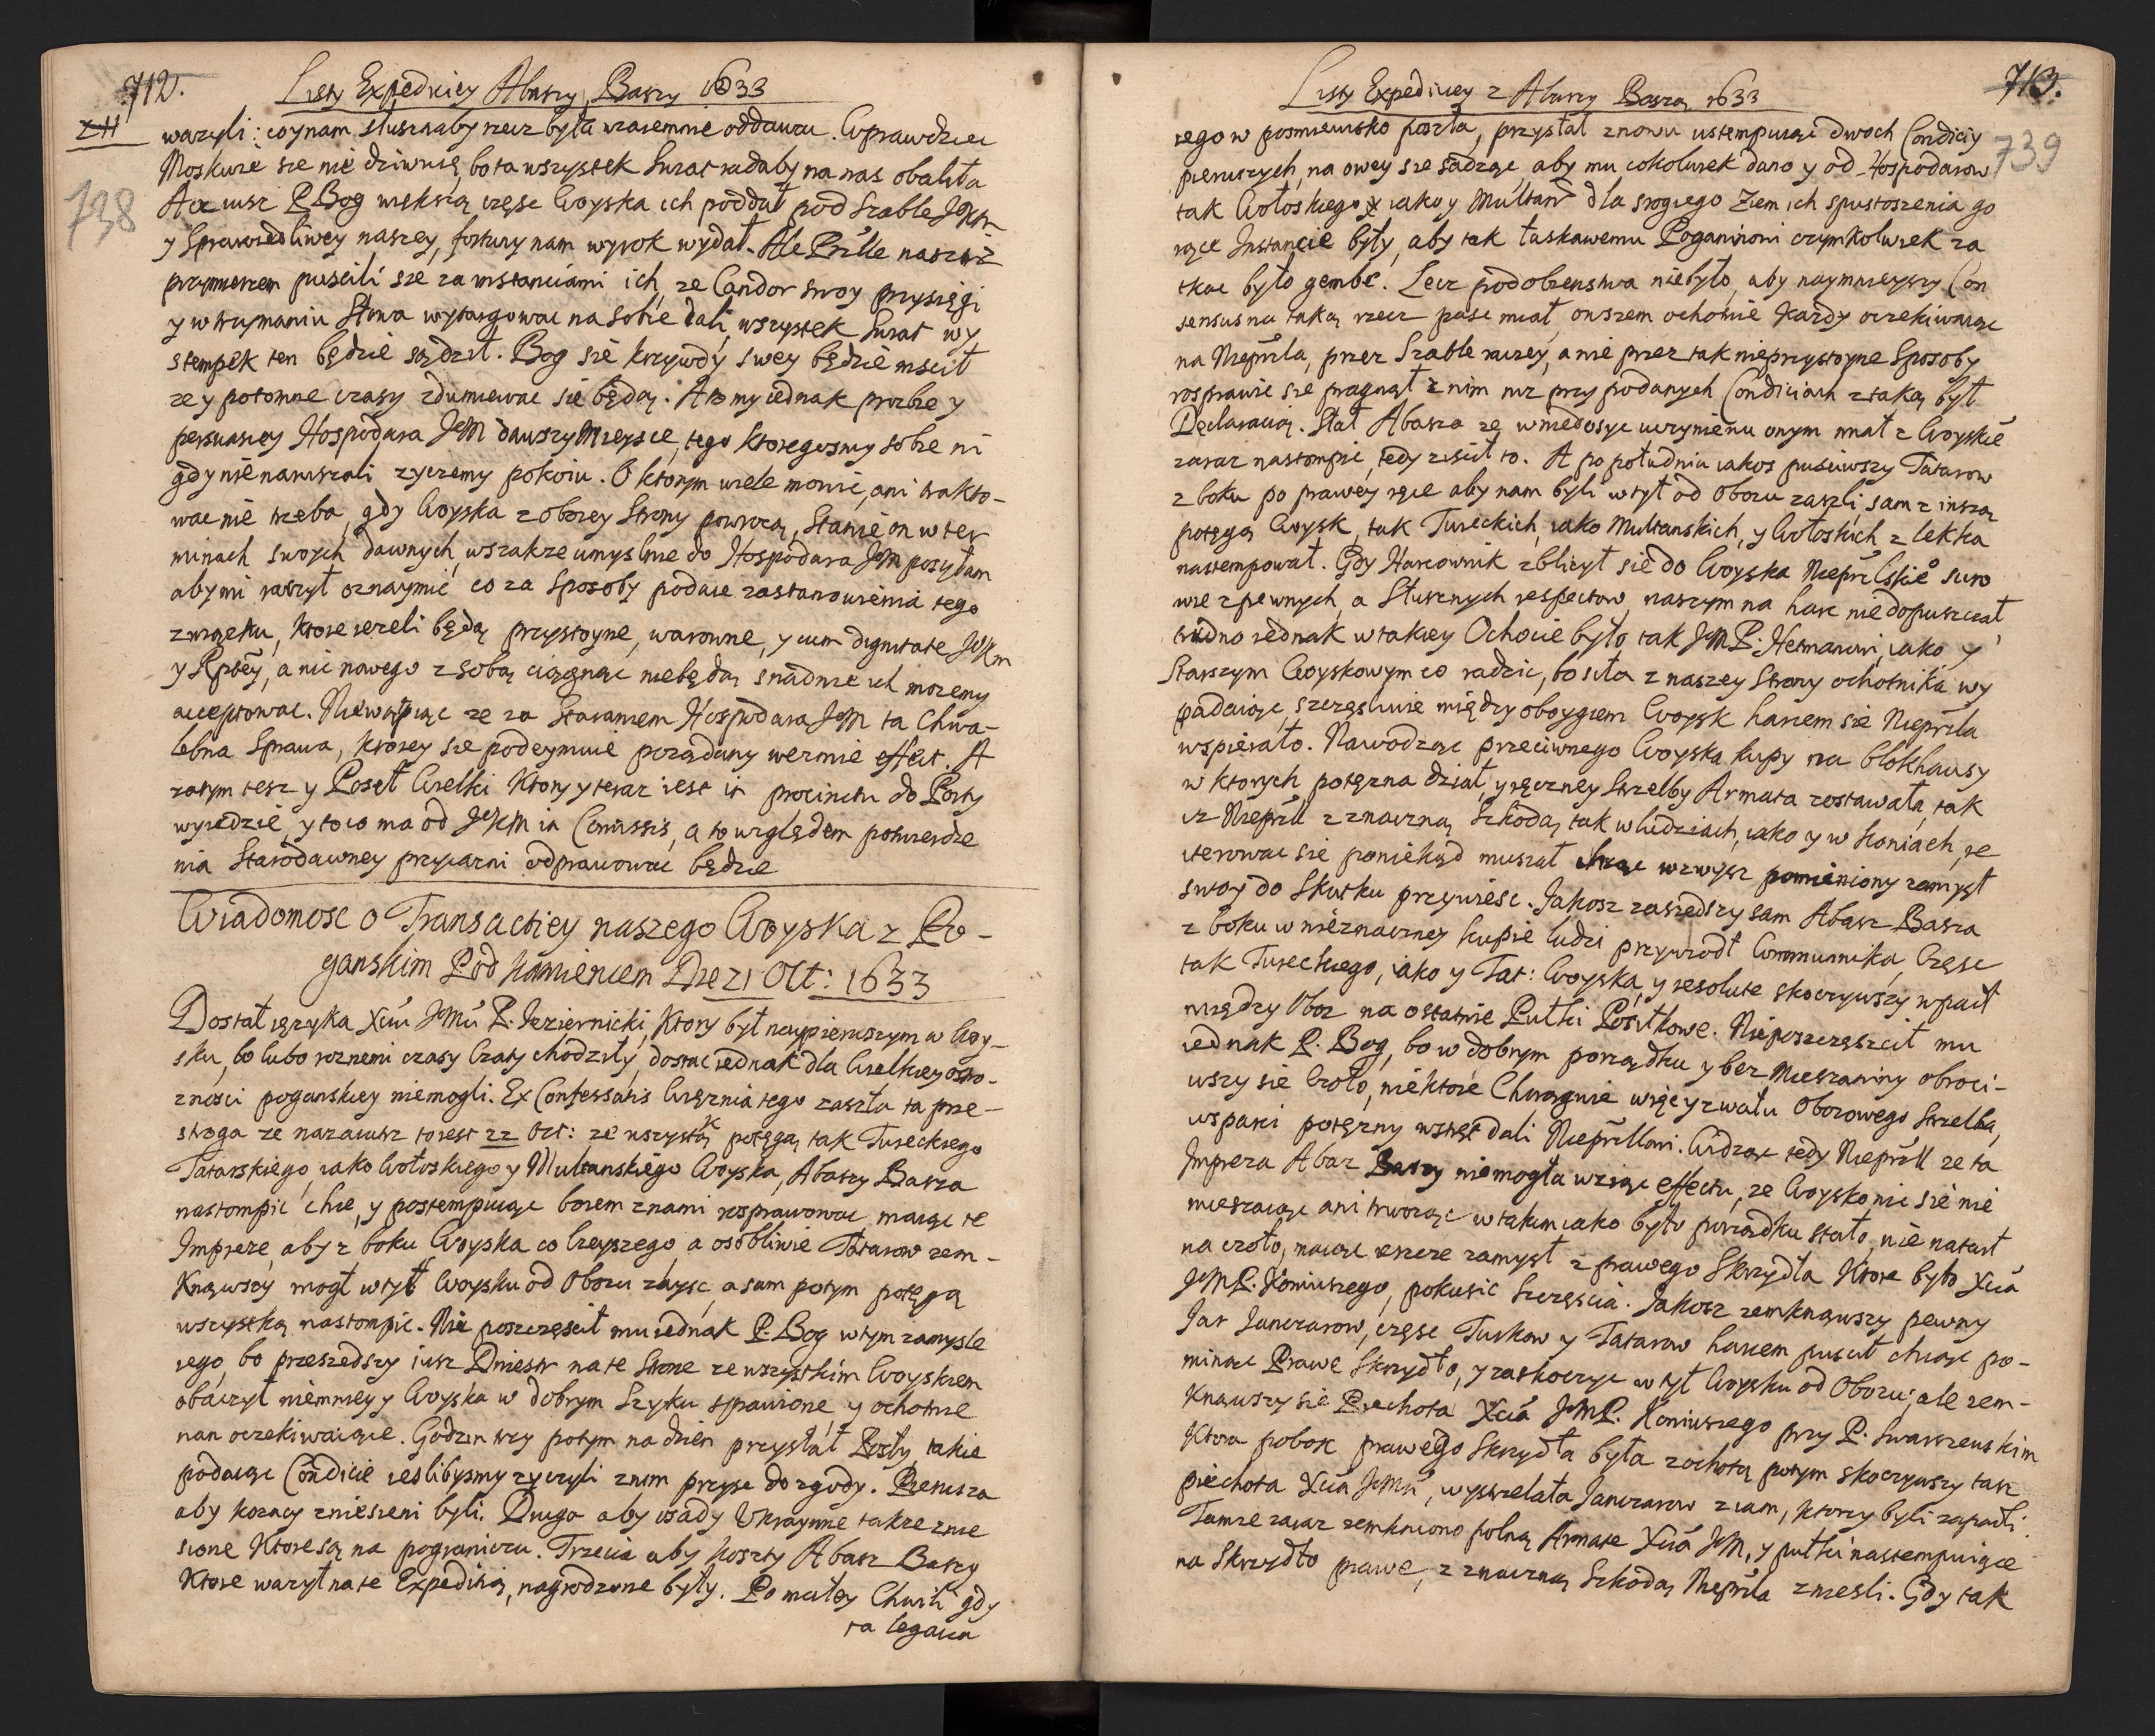 712.
Listy Expediciey Abaszy Baszy 1633
738
warzyli: coynam słusznaby rzecz była wzaiemnie oddawac. Wprawdziec
Moskwie sie nie dziwuię, bo ta wszystek Swiat radaby na nas obaliła
Acz iusz P Bog większą częsc Woyska ich poddał pod Szable JKM
y Sprawiedliwey naszey, fortuny nam wyrok wydał. Ale Prlle nasz z
przymierzem puscili sie za instanciami ich, ze Candor swoy przysięgi
y w trzymaniu Słowa wytargowac na sobie dali, wszystek Swiat wy
stempek ten będzie sądził. Bog sie krzywdy swey będzie mscił
ze y potomne czasy zdumiewac się będą. A to my iednak prozbie y
persuasiey Hospodara JeM dawszy Mieysce, tego ktoregosmy sobie ni
gdy nie naruszali zyczemy pokoiu. O ktorym wiele mowic, ani trakto-
wac nie trzeba, gdy Woyska z obozey Strony powrocą, Stanie on w ter
minach swoych dawnych, wszakze umyslnie do Hospodara JeM posyłam
abymi raczył oznaymic co za Sposoby podaie zastanowienia tego
związku, ktore iezeli będą przystoyne, warowne, y cum dignitate JKM
y Rptey, a nic nowego z sobą ciągnąc niebędą snadnie ich mozemy
acceptowac. Niewątpiąc ze za Staraniem Hospodara JeM ta Chwa-
lebna Sprawa, ktorey sie podeymuie pozadany wezmie effect. A
zatym tesz y Poseł Wielki Ktory y teraz iest in procinctu do Porty
wyiedzie, y to co ma od JKM in Comissis, a to względem potwierdze
nia Starodawney przyiazni odprawowac będzie
Wiadomosc o Transactiey naszego Woyska z Po-
ganskim Pod Kamiencem Die 21 Oct: 1633
Dostał ięzyka Xciu JeMci P. Jeziernicki, Ktory był naypierwszym w Woy-
sku, bo lubo roznemi czasy Czaty chodziły, dostac iednak dla Wielkiey ostro-
znosci poganskiey niemogli. Ex Confessatis Więznia tego zaszła ta prze-
stroga ze nazaiutrz to iest 22 Oct: ze wszystką potęgą tak Tureckiego
Tatarskiego, iako Wołoskiego y Multanskiego Woyska, Abaszy Basza
nastompic chce, y postempuiąc bozem znami rosprawowac maiąc te
Impreze, aby z boku Woyska co lzeyszego, a osobliwie Tatarow zem-
knąwszy mogł w tył Woysku od Obozu zaysc, a sam potym potęgą
wszystką nastompic. Nie poszczęscił mu iednak P. Bog w tym zamysle
iego, bo przeszedszy iusz Dniestr na te Strone ze wszystkim Woyskiem
obaczył niemniey y Woyska w dobrym Szyku sprawione, y ochotnie
nan oczekiwaiące. Godzin trzy potym na dzien przysłał Posły, takie
podaiąc Condicie ieslibysmy zyczyli znim przysc do zgody. Pierwsza
aby kozacy zniesieni byli. Druga aby osady Ukraynne takze znie
sione Ktore są na pograniczu. Trzecia aby koszty Abasz Baszy
Ktore wazył na te Expeditią, nagrodzone były. Po małey Chwili gdy
ta legacia
Listy Expediciey z Abaszy Baszą 1633
713.
739
iego w posmiewisko poszła, przysłał znowu ustempuiąc dwoch Condiciy
pierwszych, na owey sie sadząc aby mu cokolwiek dano y od Hospodarow
tak Wołoskiego iako y Multan dla srogiego Ziem ich spustoszenia go
rące Instancie były, aby tak łaskawemu Poganinowi czymkolwiek za
tkac było gembe. Lecz podobienstwa niebyło, aby naymnieyszy Con
sensus na taką rzecz pasc miał, owszem ochotnie Kazdy oczekiwaiąc
na Nieprla, przez Szable raczey, a nie przez tak nieprzystoyne Sposoby
rosprawic sie pragnął z nim niz przy podanych Condiciach z taką był
Declaracią. Stał Abasza ze w niedosyc uczynieniu onym miał z Woyskiē
zaraz nastompic, tedy ziscił to. A po południu iakos pusciwszy Tatarow
z boku po prawey ręce aby nam byli w tył od Obozu zaszli, sam z inszą
potęgą Woysk, tak Tureckich, iako Multanskich, y Wołoskich z lekka
nastempował. Gdy Harcownik zblizył sie do Woyska Nieprlskiē suro
wie z pewnych, a Słusznych respectow, naszym na harc nie dopuszczał,
trudno iednak w takiey Ochocie było, tak JeM P. Hetmanowi, iako y
Starszym Woyskowym co radzic, bo siła z naszey Strony ochotnika wy
padaiąc, szczęsliwie między oboygiem Woysk harcem sie Nieprla
wspierało. Nawodząc przeciwnego Woyska kupy na blokhausy
w ktorych potęzna dział, y ręczney Strzelby Armata zostawała, tak
iz Nieprll z znaczną Szkodą, tak w ludziach, iako y w koniach, re
iterowac sie poniekąd musiał chcąc wzwysz pomieniony zamysł
swoy do Skutku przywiesc. Jakosz zaszedszy sam Abasz Basza
z boku w nieznaczney kupie ludzi przywiodł Communnika, Częsc
tak Tureckiego, iako y Tat: Woyska, y resolute skoczywszy wpadł
między Oboz na ostatnie Pułki Posiłkowe. Nieposzczęscił mu
iednak P. Bog, bo w dobrym porządku y bez Mieszaniny obroci-
wszy sie Czoło, niektore Chorągwie więc y z wału Obozowego Strzelbą,
wsparci potęzny wstręt dali Nieprllowi. Widząc tedy Nieprll ze ta
Impreza Abaz Baszy niemogła wziąc effectu, ze Woysko nic sie nie
mieszaiąc ani trwoząc w takim iako było porządku stało, nie natarł
na czoło, maiąc ieszcze zamysł z prawego Skrzydła Ktore było Xcia
JeM P. Koniuszego, pokusic Szczęscia. Jakosz zemknąwszy pewny
Jar Janczarow, częsc Turkow y Tatarow harcem puscił chcąc po-
minąc Prawe Skrzydło, y zaskoczyc w tył Woysku od Obozu; ale zem-
knąwszy sie Piechota Xcia JeM P. Koniuszego przy P. Swarzewskim
Ktora pobok prawego Skrzydła była z ochotą potym skoczywszy tasz
piechota Xcia JeMci, wystrzelała Janczarow z iam, ktorzy byli zapadli.
Tamze zaraz zemkniono polną Armate Xcia JeM, y pułki nastempuiące
na Skrzydło prawe, z znaczną Szkodą Nieprla zniesli. Gdy tak